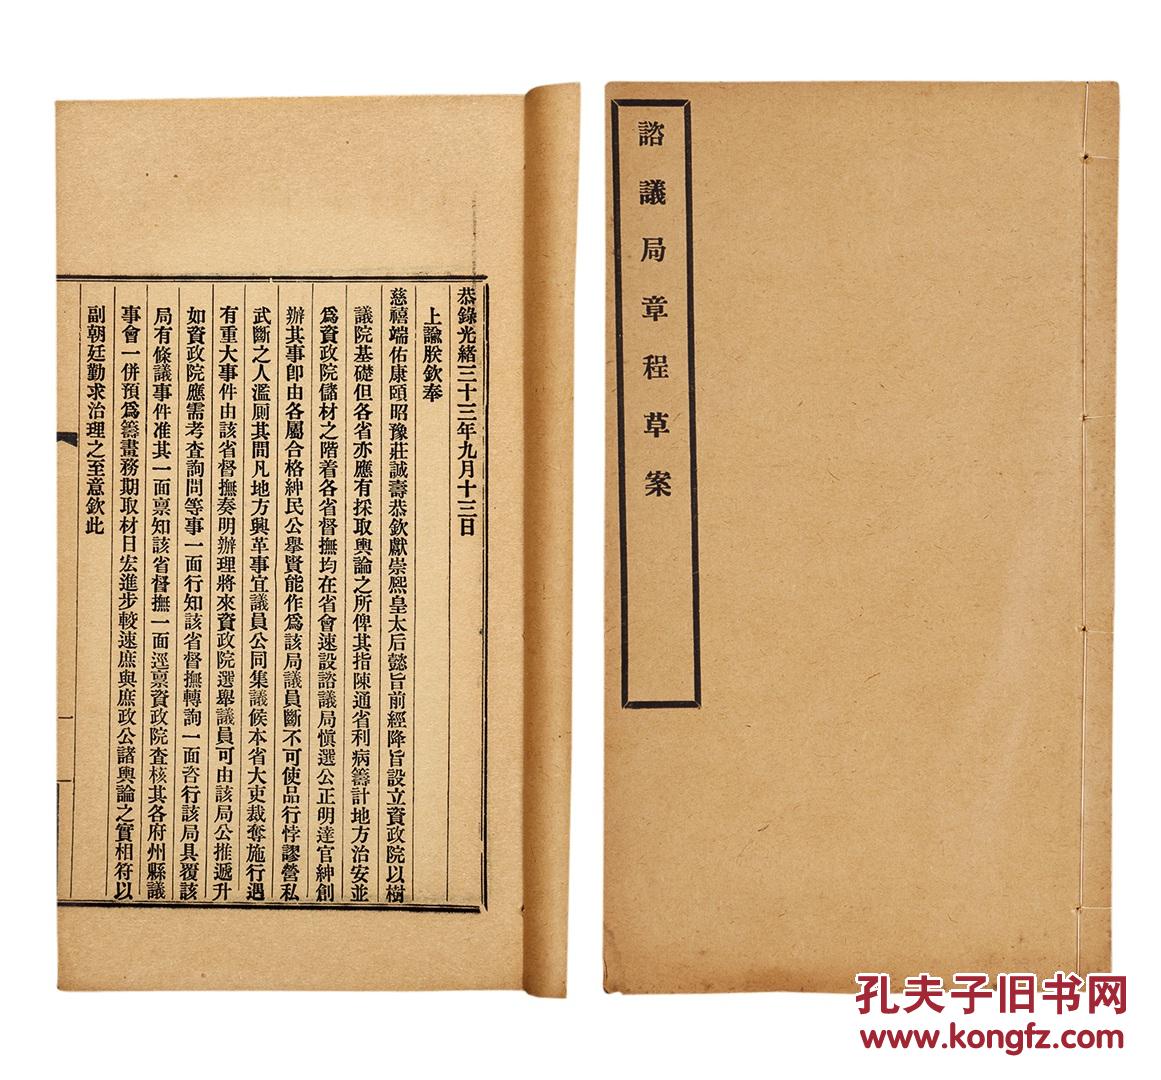 諮議局章程草案
恭錄光緒三十三年九月十三日
上諭朕欽奉
慈禧端佑康頤昭豫莊誠壽恭欽獻崇熙皇太后懿旨前經降旨設立資政院以樹
議院基礎但各省亦應有採取輿論之所俾其指陳通省利病籌計地方治安並
爲資政院儲材之階着各省督撫均在省會速設諮議局慎選公正明達官紳創
辦其事即由各屬合格紳民公舉賢能作爲該局議員斷不可使品行悖謬營私
武斷之人濫厠其間凡地方興革事宜議員公同集議候本省大吏裁奪施行遇
有重大事件由該省督撫奏明辦理將來資政院選舉議員可由該局公推遞升
如資政院應需考查詢問等事一面行知該省督撫轉詢一面咨行該局具覆該
局有條議事件准其一面稟知該省督撫一面逕稟資政院查核其各府州縣議
事會一併預爲籌畫務期取材日宏進步較速庶與庶政公諸輿論之實相符以
副朝廷勤求治理之至意欽此
一
孔夫子旧书网
www.kongfz.com